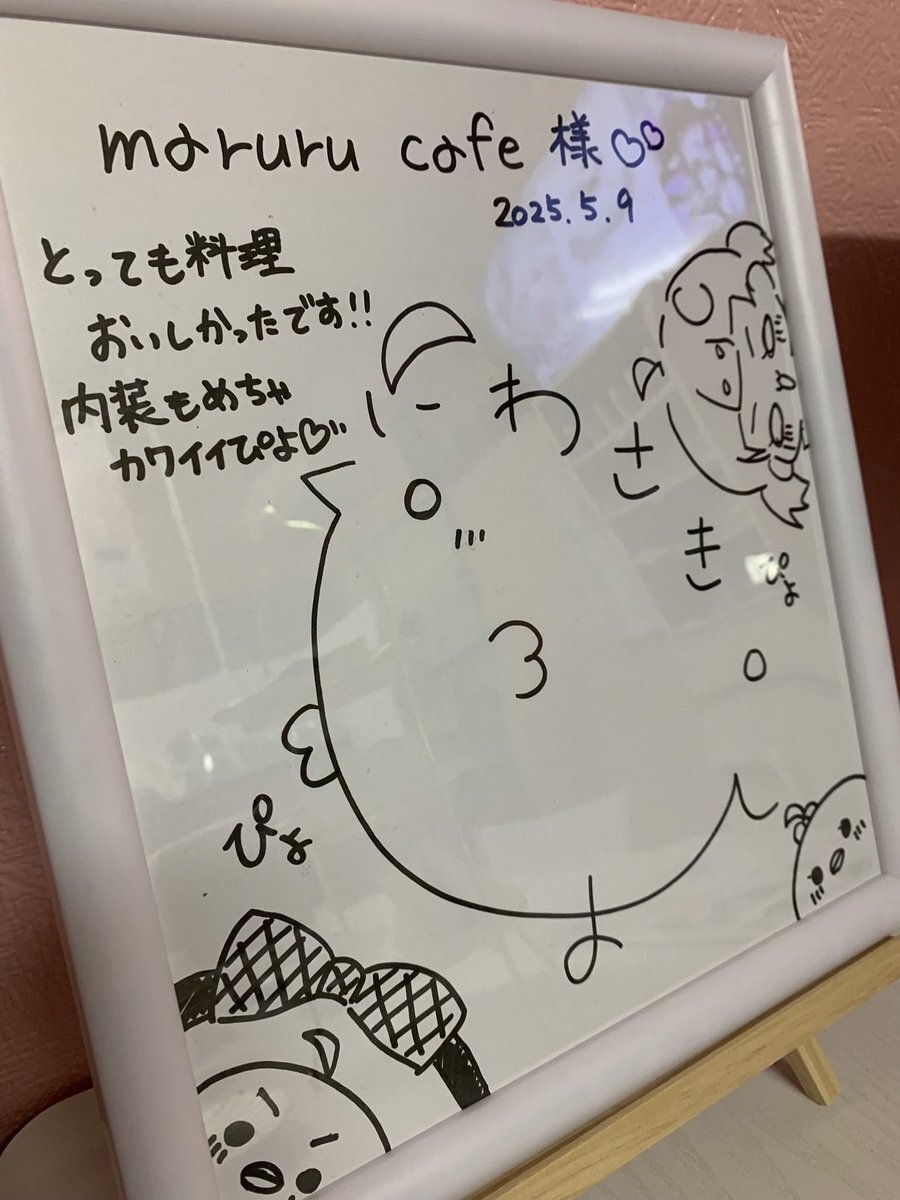 maruru cafe 様♡♡
2025.5.9
とっても料理
おいしかったです!!
内装もめちゃ
カワイイぴよ♡
ぴよ
ぴよ